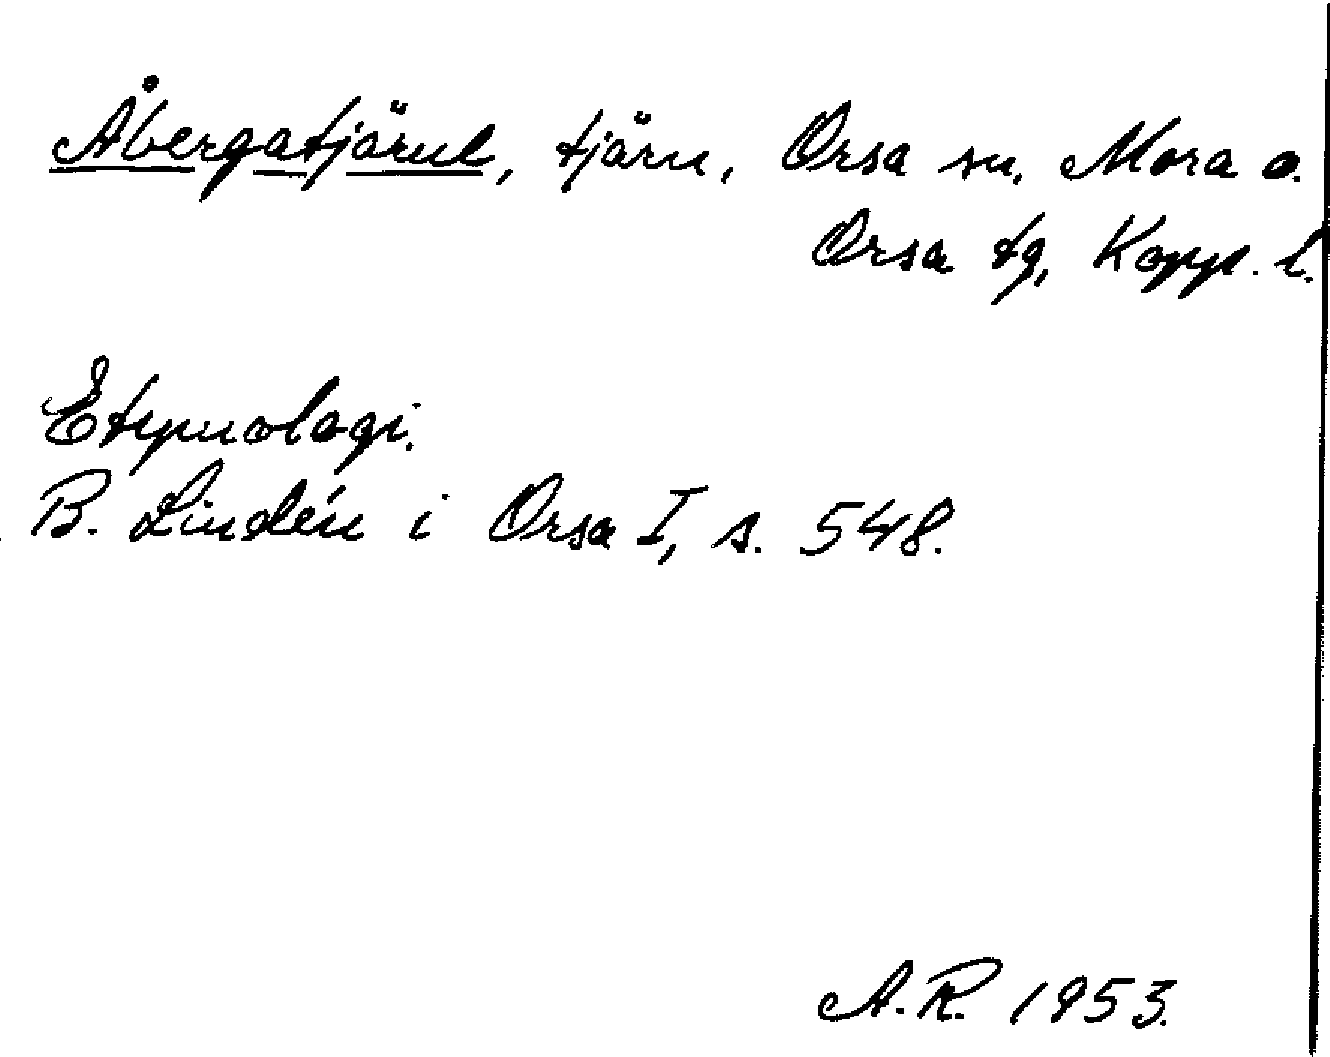 Åbergatjärnl, tjärn, Orsa sn, Mora o.
Orsa tg, Kopp. l.
Etymologi.
B. Lindén i Orsa I, s. 548.
A.R. 1953.